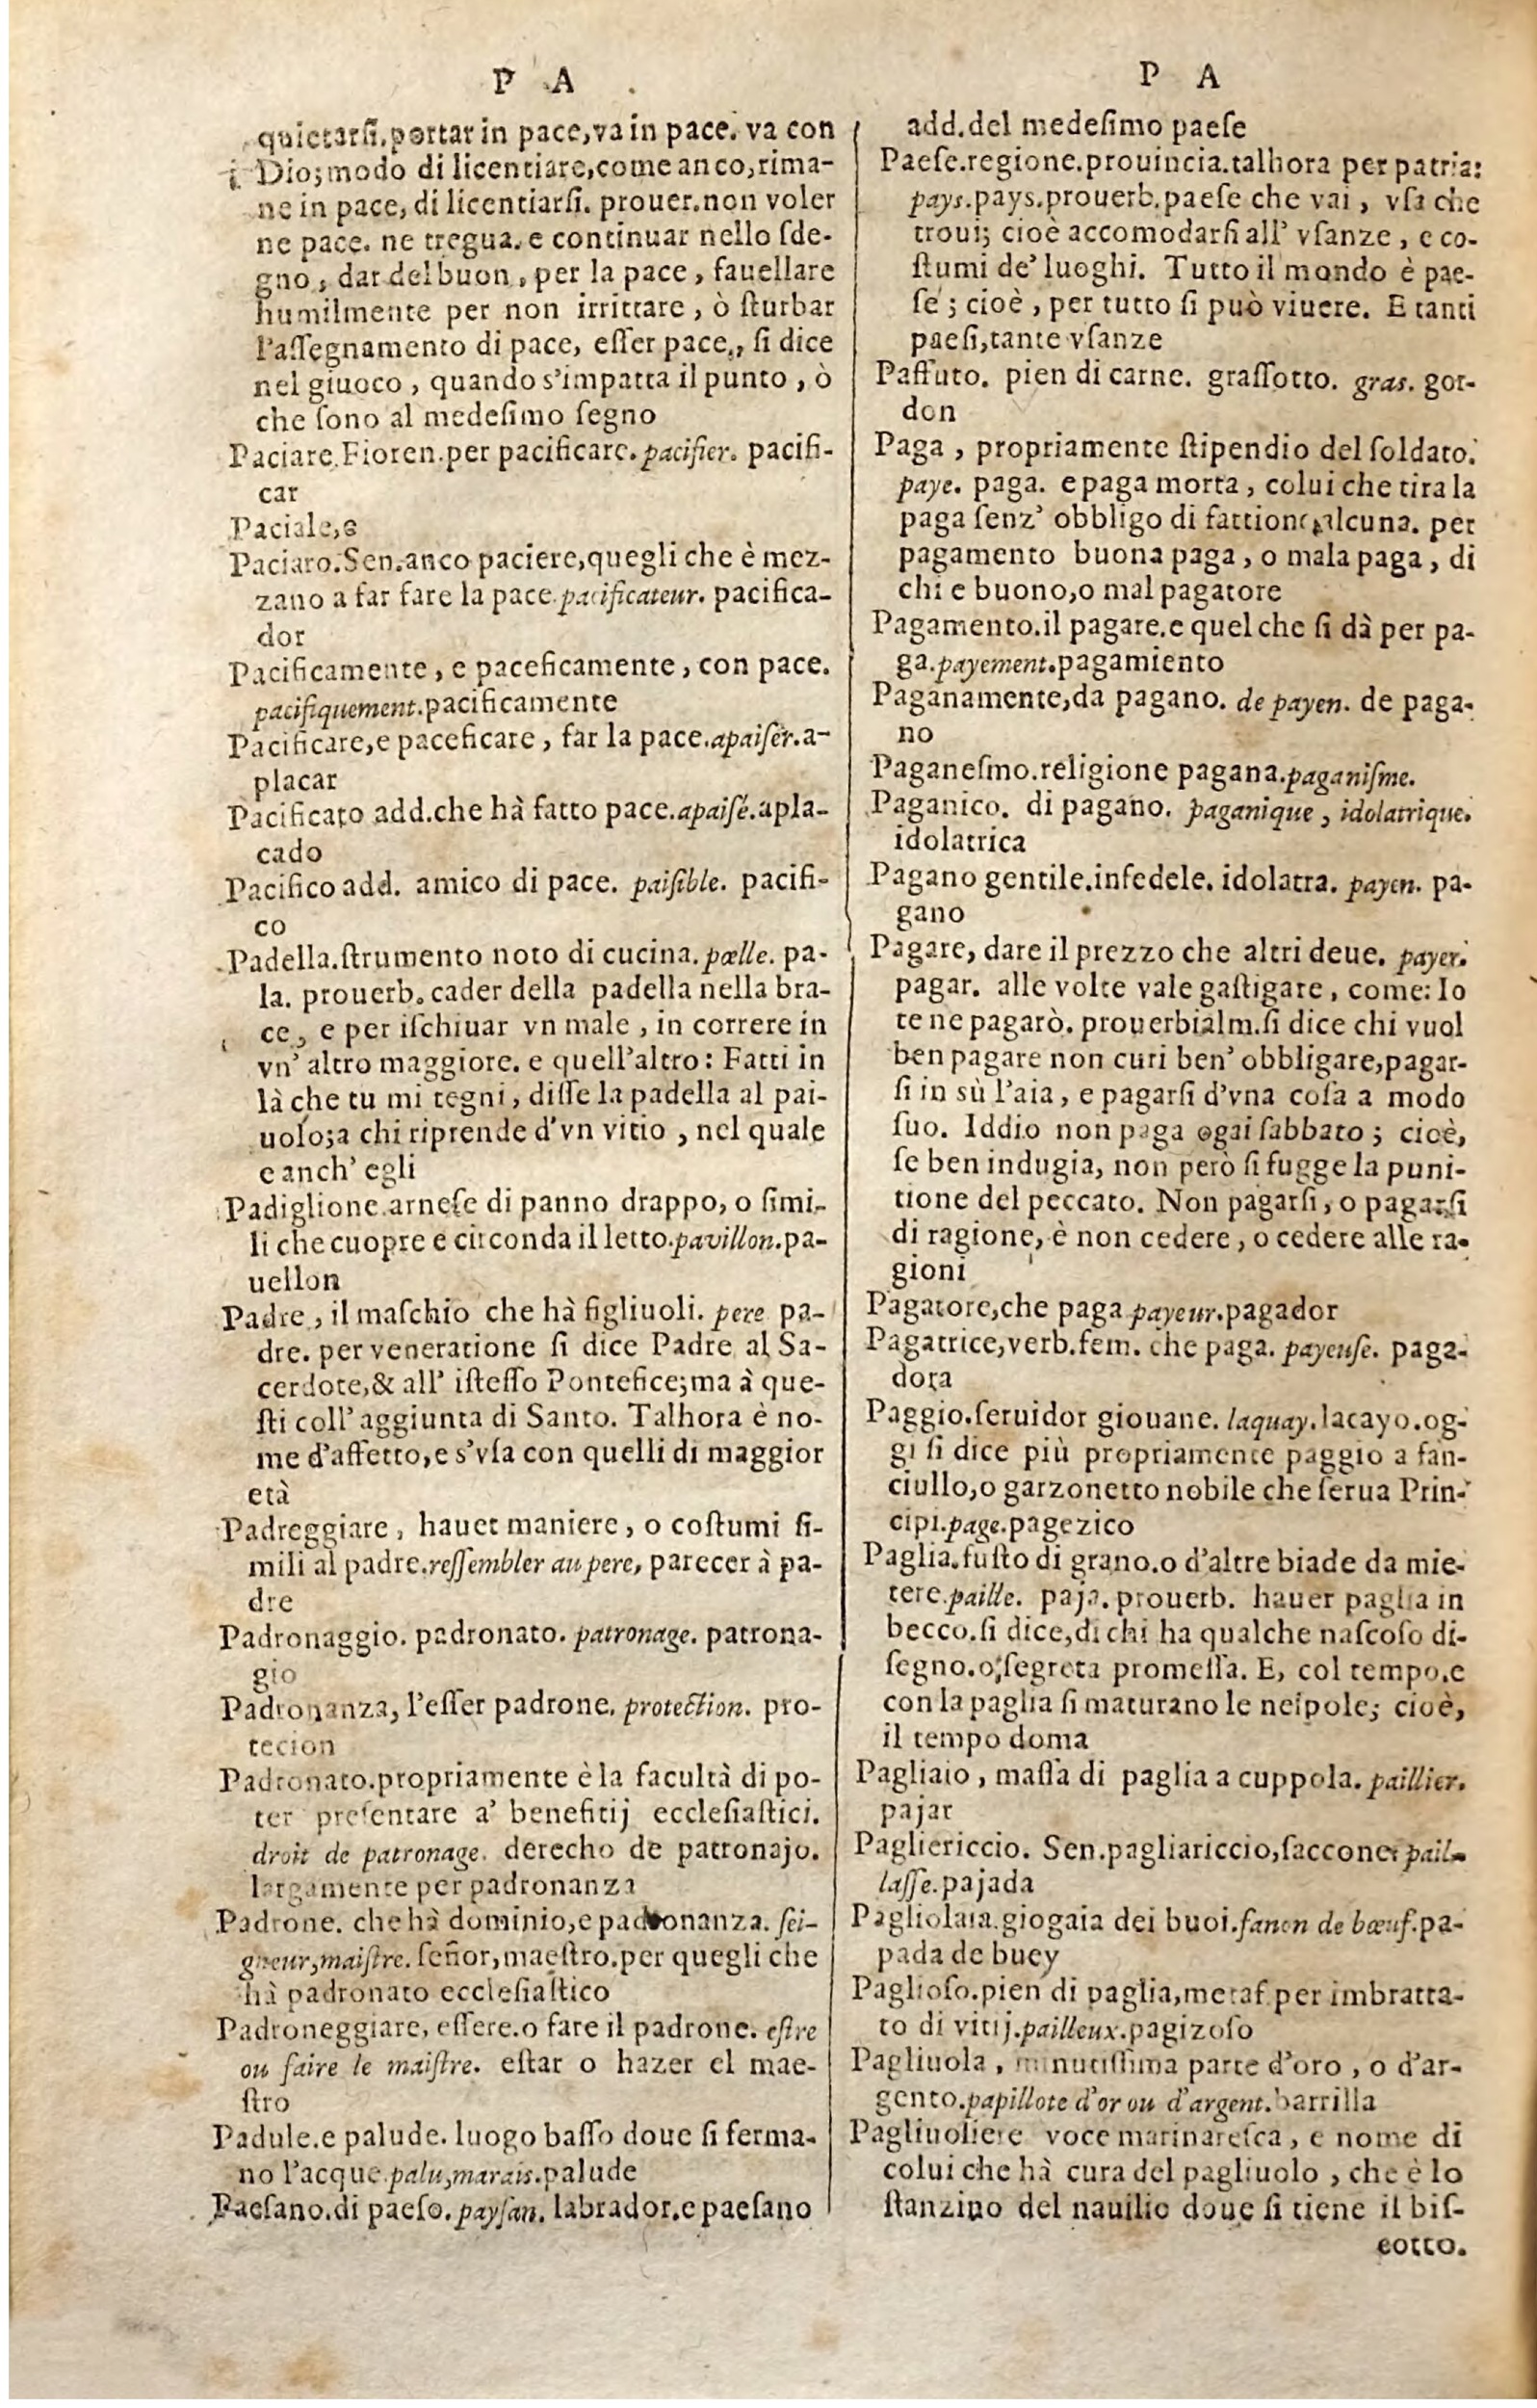 P A
quietarſi.portar in pace,va in pace. va con
Dio;modo di licentiare,come anco,rima-
ne in pace, di licentiarſi. prouer.non voler
ne pace. ne tregua. e continuar nello ſde-
gno, dar del buon, per la pace, fauellare
humilmente per non irrittare, ò ſturbar
l'aſſegnamento di pace, eſſer pace., ſi dice
nel giuoco, quando s'impatta il punto, ò
che ſono al medeſimo ſegno
Paciare.Fioren.per pacificare.pacifier. pacifi-
car
Paciale,e
Paciaro.Sen.anco paciere,quegli che è mez-
zano a far fare la pace.pacificateur. pacifica-
dor
Pacificamente, e paceficamente, con pace.
pacifiquement.pacificamente
Pacificare,e paceficare, far la pace.apaiſer.a-
placar
Pacificato add.che hà fatto pace.apaiſé.apla-
cado
Pacifico add. amico di pace. paiſible. pacifi-
co
Padella.ſtrumento noto di cucina.pœlle. pa-
la. prouerb.cader della padella nella bra-
ce, e per iſchiuar vn male, in correre in
vn' altro maggiore. e quell'altro: Fatti in
là che tu mi tegni, diſſe la padella al pai-
uolo;a chi riprende d'vn vitio, nel quale
e anch' egli
Padiglione.arneſe di panno drappo, o ſimi-
li che cuopre e circonda il letto.pavillon.pa-
uellon
Padre, il maſchio che hà figliuoli. pere pa-
dre. per veneratione ſi dice Padre al Sa-
cerdote,& all' iſteſſo Pontefice;ma à que-
ſti coll' aggiunta di Santo. Talhora è no-
me d'affetto,e s'vſa con quelli di maggior
età
Padreggiare, hauer maniere, o coſtumi ſi-
mili al padre.reſſembler au pere, parecer à pa-
dre
Padronaggio. padronato. patronage. patrona-
gio
Padronanza, l'eſſer padrone. protection. pro-
tecion
Padronato.propriamente è la facultà di po-
ter preſentare a' benefitij eccleſiaſtici.
droit de patronage. derecho de patronajo.
largamente per padronanza
Padrone. che hà dominio,e padronanza. ſei-
gneur,maiſtre. ſeñor,maeſtro.per quegli che
hà padronato eccleſiaſtico
Padroneggiare, eſſere.o fare il padrone. eſtre
ou faire le maiſtre. eſtar o hazer el mae-
ſtro
Padule.e palude. luogo baſſo doue ſi ferma-
no l'acque.palu,marais.palude
Paeſano.di paeſo.payſan. labrador.e paeſano
P A
add.del medeſimo paeſe
Paeſe.regione.prouincia.talhora per patria:
pays.pays.prouerb.paeſe che vai, vſa che
troui; cioè accomodarſi all' vſanze, e co-
ſtumi de' luoghi. Tutto il mondo è pae-
ſe; cioè, per tutto ſi può viuere. E tanti
paeſi,tante vſanze
Paffuto. pien di carne. graſſotto. gras. gor-
don
Paga, propriamente ſtipendio del ſoldato.
paye. paga. e paga morta, colui che tira la
paga ſenz' obbligo di fattione alcuna. per
pagamento buona paga, o mala paga, di
chi e buono,o mal pagatore
Pagamento.il pagare.e quel che ſi dà per pa-
ga.payement.pagamiento
Paganamente,da pagano. de payen. de paga-
no
Paganeſmo.religione pagana.paganiſme.
Paganico. di pagano. paganique, idolatrique.
idolatrica
Pagano gentile.infedele. idolatra. payen. pa-
gano
Pagare, dare il prezzo che altri deue. payer.
pagar. alle volte vale gaſtigare, come: Io
te ne pagarò. prouerbialm.ſi dice chi vuol
ben pagare non curi ben' obbligare,pagar-
ſi in sù l'aia, e pagarſi d'vna coſa a modo
ſuo. Iddio non paga ogai ſabbato; cioè,
ſe ben indugia, non però ſi fugge la puni-
tione del peccato. Non pagarſi, o pagarſi
di ragione, è non cedere, o cedere alle ra-
gioni
Pagatore,che paga payeur.pagador
Pagatrice,verb.fem. che paga. payeuſe. paga-
dora
Paggio.ſeruidor giouane. laquay.lacayo.og-
gi ſi dice più propriamente paggio a fan-
ciullo,o garzonetto nobile che ſerua Prin-
cipi.page.pagezico
Paglia.fuſto di grano.o d'altre biade da mie-
tere.paille. paja. prouerb. hauer paglia in
becco.ſi dice,di chi ha qualche naſcoſo di-
ſegno.o ſegreta promeſſa. E, col tempo.e
con la paglia ſi maturano le neſpole; cioè,
il tempo doma
Pagliaio, maſſa di paglia a cuppola. paillier.
pajar
Pagliericcio. Sen.pagliariccio,ſaccone. pail-
laſſe.pajada
Pagliolaia.giogaia dei buoi.fanon de bœuf.pa-
pada de buey
Paglioſo.pien di paglia,metaf.per imbratta-
to di vitij.pailleux.pagizoſo
Pagliuola, minutiſſima parte d'oro, o d'ar-
gento.papillote d'or ou d'argent.barrilla
Pagliuoliere voce marinareſca, e nome di
colui che hà cura del pagliuolo, che è lo
ſtanzino del nauilio doue ſi tiene il biſ-
cotto.